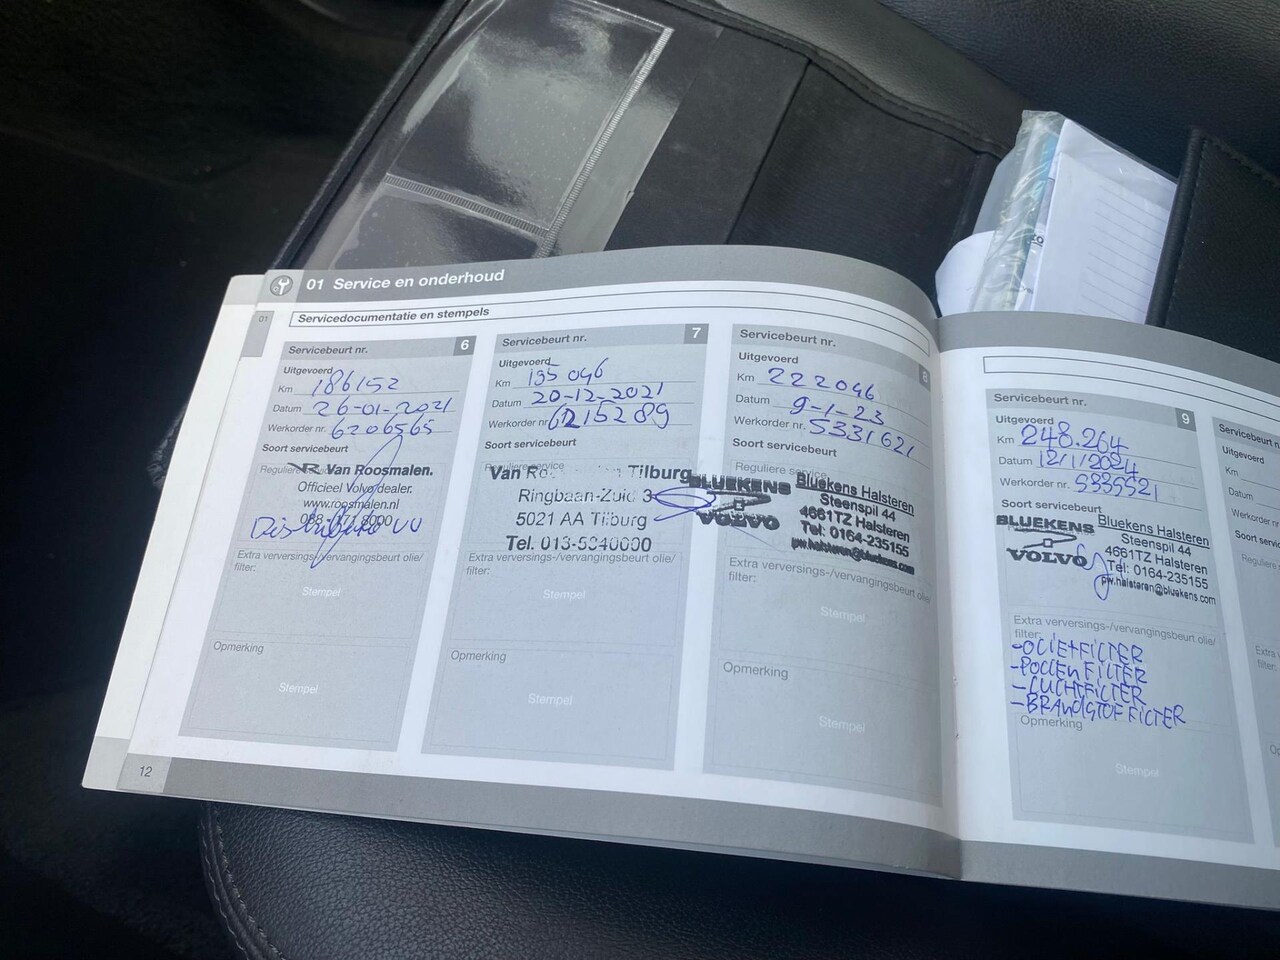 01 Service en onderhoud
01
Servicedocumentatie en stempels
Servicebeurt nr. 6
Uitgevoerd
Km 186152
Datum 26-01-2021
Werkorder nr. 6206565
Soort servicebeurt
Reguliere
Van Roosmalen.
Officieel Volvo dealer.
www.roosmalen.nl
Extra verversings-/vervangingsbeurt olie/
filter:
Stempel
Opmerking
Stempel
12
Servicebeurt nr. 7
Uitgevoerd
Km 195 046
Datum 20-12-2021
Werkorder nr. 6215289
Soort servicebeurt
Reguliere service
Van Tilburg
Ringbaan-Zuid 3
5021 AA Tilburg
Tel. 013-5340000
Extra verversings-/vervangingsbeurt olie/
filter:
Stempel
Opmerking
Stempel
Servicebeurt nr. 8
Uitgevoerd
Km 222046
Datum 9-1-23
Werkorder nr. 5331621
Soort servicebeurt
Reguliere service
BLUEKENS
VOLVO
Bluekens Halsteren
Steenspil 44
4661TZ Halsteren
Tel: 0164-235155
pw.halsteren@bluekens.com
Extra verversings-/vervangingsbeurt olie/
filter:
Stempel
Opmerking
Stempel
Servicebeurt nr. 9
Uitgevoerd
Km 248.264
Datum 12/1/2024
Werkorder nr. 5335521
Soort servicebeurt
BLUEKENS
VOLVO
Bluekens Halsteren
Steenspil 44
4661TZ Halsteren
Tel: 0164-235155
pw.halsteren@bluekens.com
Extra verversings-/vervangingsbeurt olie/
filter:
-OLIE+FILTER
-POLLEN FILTER
-LUCHTFILTER
-BRANDSTOF FILTER
Opmerking
Stempel
Servicebeurt
Uitgevoerd
Km
Datum
Werkorder nr.
Soort
Reguliere
Extra
filter: